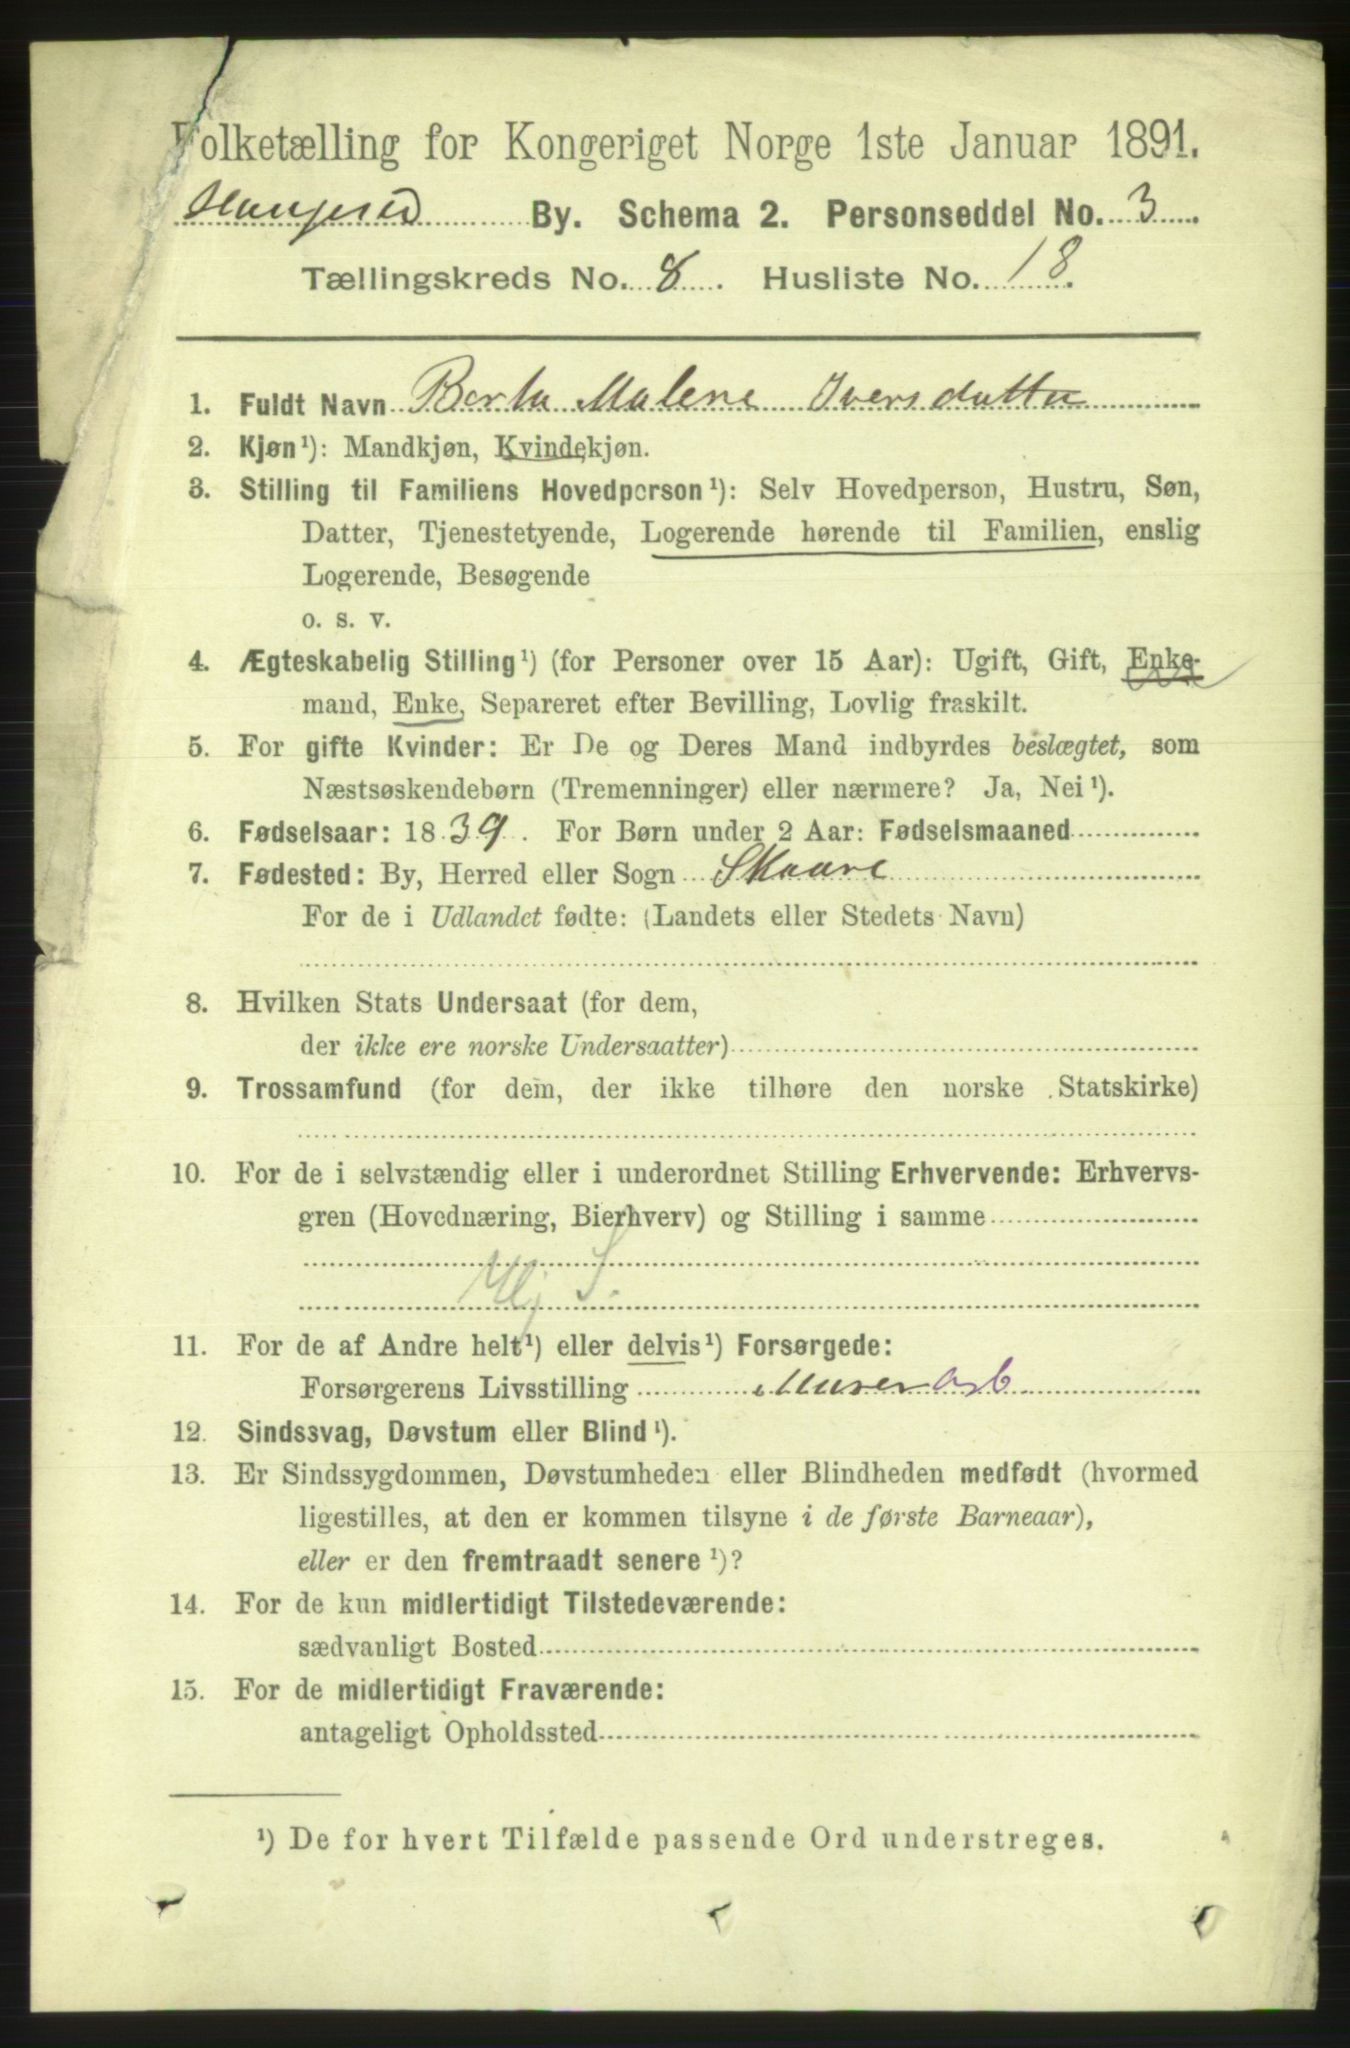 Folketælling for Kongeriget Norge 1ste Januar 1891.
Haugesund By. Schema 2. Personseddel No. 3
Tællingskreds No. 8. Husliste No. 18.
1. Fuldt Navn Berta Malene Iversdatter
2. Kjøn¹): Mandkjøn, Kvindekjøn.
3. Stilling til Familiens Hovedperson¹): Selv Hovedperson, Hustru, Søn,
Datter, Tjenestetyende, Logerende hørende til Familien, enslig
Logerende, Besøgende
o. s. v.
4. Ægteskabelig Stilling¹) (for Personer over 15 Aar): Ugift, Gift, Enke-
mand, Enke, Separeret efter Bevilling, Lovlig fraskilt.
5. For gifte Kvinder: Er De og Deres Mand indbyrdes beslægtet, som
Næstsøskendebørn (Tremenninger) eller nærmere? Ja, Nei¹).
6. Fødselsaar: 1839. For Børn under 2 Aar: Fødselsmaaned
7. Fødested: By, Herred eller Sogn Skaare
For de i Udlandet fødte: (Landets eller Stedets Navn)
8. Hvilken Stats Undersaat (for dem,
der ikke ere norske Undersaatter)
9. Trossamfund (for dem, der ikke tilhøre den norske Statskirke)
10. For de i selvstændig eller i underordnet Stilling Erhvervende: Erhvervs-
gren (Hovednæring, Bierhverv) og Stilling i samme
Hj S.
11. For de af Andre helt¹) eller delvis¹) Forsørgede:
Forsørgerens Livsstilling Murerarb
12. Sindssvag, Døvstum eller Blind¹).
13. Er Sindssygdommen, Døvstumheden eller Blindheden medfødt (hvormed
ligestilles, at den er kommen tilsyne i de første Barneaar),
eller er den fremtraadt senere¹)?
14. For de kun midlertidigt Tilstedeværende:
sædvanligt Bosted
15. For de midlertidigt Fraværende:
antageligt Opholdssted
¹) De for hvert Tilfælde passende Ord understreges.